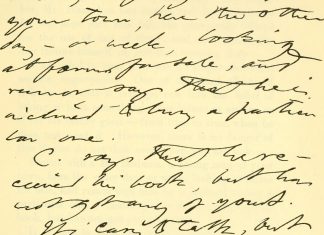 your town, here the other
day – or week, looking
at farms for sale, and
rumor says that he is
inclined to buy a particu
lar one.
C. says that he re-
ceived his book, but has
not got any of yours.
It's easy to talk, but